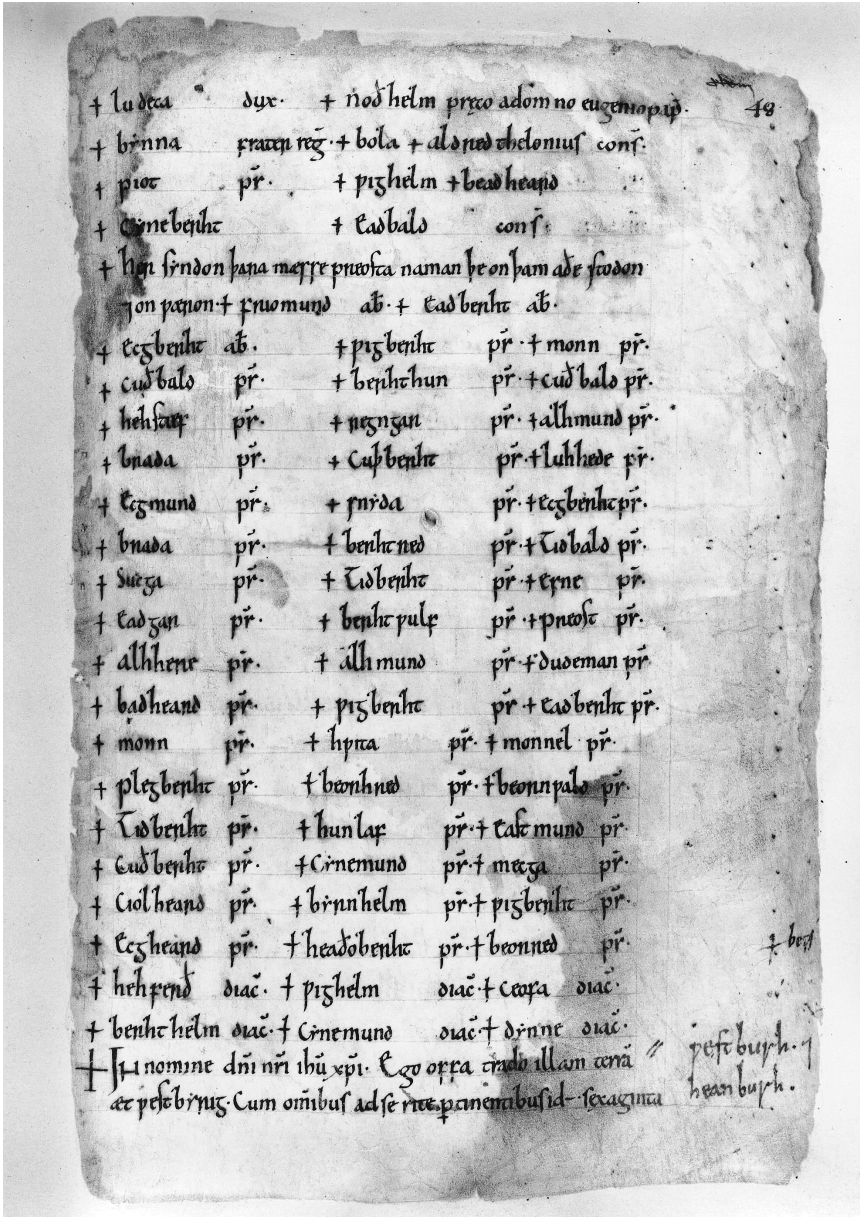 48
+ ludeca dux· + noðhelm præco a domno eugenio pap̄·
+ bynna frater reḡ·+ bola + aldred thelonius cons̄·
+ ƿiot pr̄· + ƿighelm + beadheard
+ Cyneberht + Eadbald cons̄·
+ her syndon þara mæsse preosta naman þe on þam aðe stodon
⁊on ƿæron·+ friomund ab̄·+ Eadberht ab̄·
+ Ecgberht ab̄· + ƿigberht pr̄·+ monn pr̄·
+ Cuðbald pr̄· + berhthun pr̄·+ cuðbald pr̄·
+ hehstæf pr̄· + regngar pr̄·+ alhmund pr̄·
+ brada pr̄· + Cuþberht pr̄·+ luhhede pr̄·
+ Ecgmund pr̄· + snyda pr̄·+ ecgberht pr̄·
+ brada pr̄· + berhtred pr̄·+ Tidbald pr̄·
+ pr̄· + Tidberht pr̄·+ efne pr̄·
+ Eadgar pr̄· + berhtƿulf pr̄·+ preost pr̄·
+ alhhere pr̄· + alhmund pr̄·+ dudeman pr̄·
+ badheard pr̄· + ƿigberht pr̄·+ Eadberht pr̄·
+ monn pr̄· + hƿita pr̄·+ monnel pr̄·
+ plegberht pr̄· + beorhred pr̄·+ beornƿald pr̄·
+ Tidberht pr̄· + hunlaf pr̄·+ Eastmund pr̄·
+ Cuðberht pr̄· + Cynemund pr̄·+ mecga pr̄·
+ Ciolheard pr̄· + byrnhelm pr̄·+ ƿigberht pr̄·
+ Ecgheard pr̄· + heaðoberht pr̄·+ beonred pr̄·
+ hehferð diac̄· + ƿighelm diac̄·+ ceofa diac̄·
+ berhthelm diac̄·+ Cynemund diac̄·+ dynne diac̄·
+ IN nomine dn̄i nr̄i ihū xp̄i· Ego offa trado illam terrā
æt ƿestbyrig· Cum om̄ibus ad se rite ꝑtinentibus id· sexaginta
ƿestburh·⁊
heanburh·